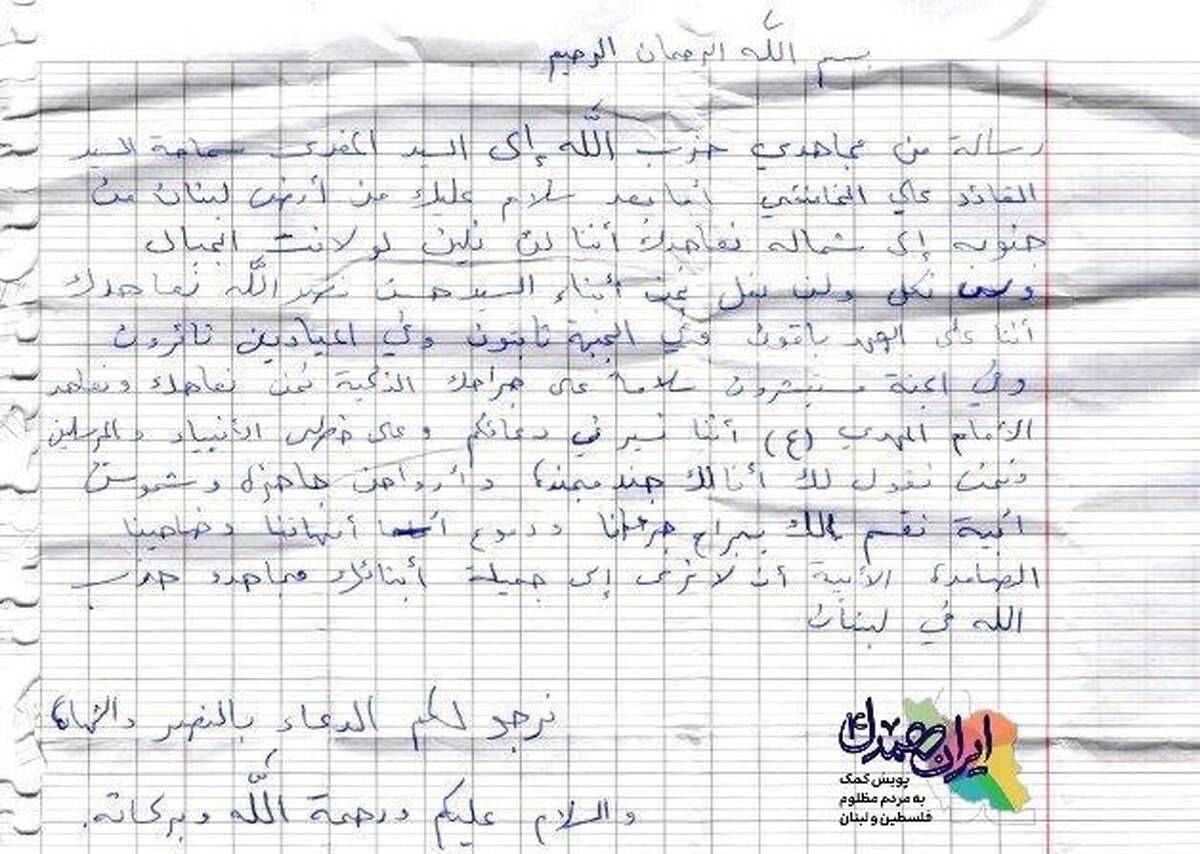 بسم الله الرحمان الرحيم
رسالة من مجاهدي حزب الله إلى السيد المفدى سماحة السيد
القائد علي الخامنئي أما بعد سلام عليك من أرض لبنان من
جنوبه إلى شماله نعاهدك أننا لن نلين لو لانت الجبال
نكل ولن نمل نحن أبناء السيد حسن نصر الله نعاهدك
أننا على العهد باقون وفي الجبهة ثابتون وفي الميادين ثائرون
وفي الجنة مستبشرون سلاماً على جراحك الذكية نحن نعاهدك ونعاهد
الأمام المهدي (ع) أننا نسير في دعائكم وعلى خطى الأنبياء والمرسلين
ونحن نقول لك أنا لك جند مجندة وأرواحن جاهزة وشموس
أبية نقسم لك بجراح جرحانا ودموع أمهاتنا وضاحينا
الصامدة الأبية أن لا ترى إلى جميلة أبنائك مجاهدو حزب
الله في لبنان
نرجو لكم الدعاء بالنصر والشهادة
والسلام عليكم ورحمة الله وبركاته.
ایران همدل
پویش کمک
به مردم مظلوم
فلسطین و لبنان